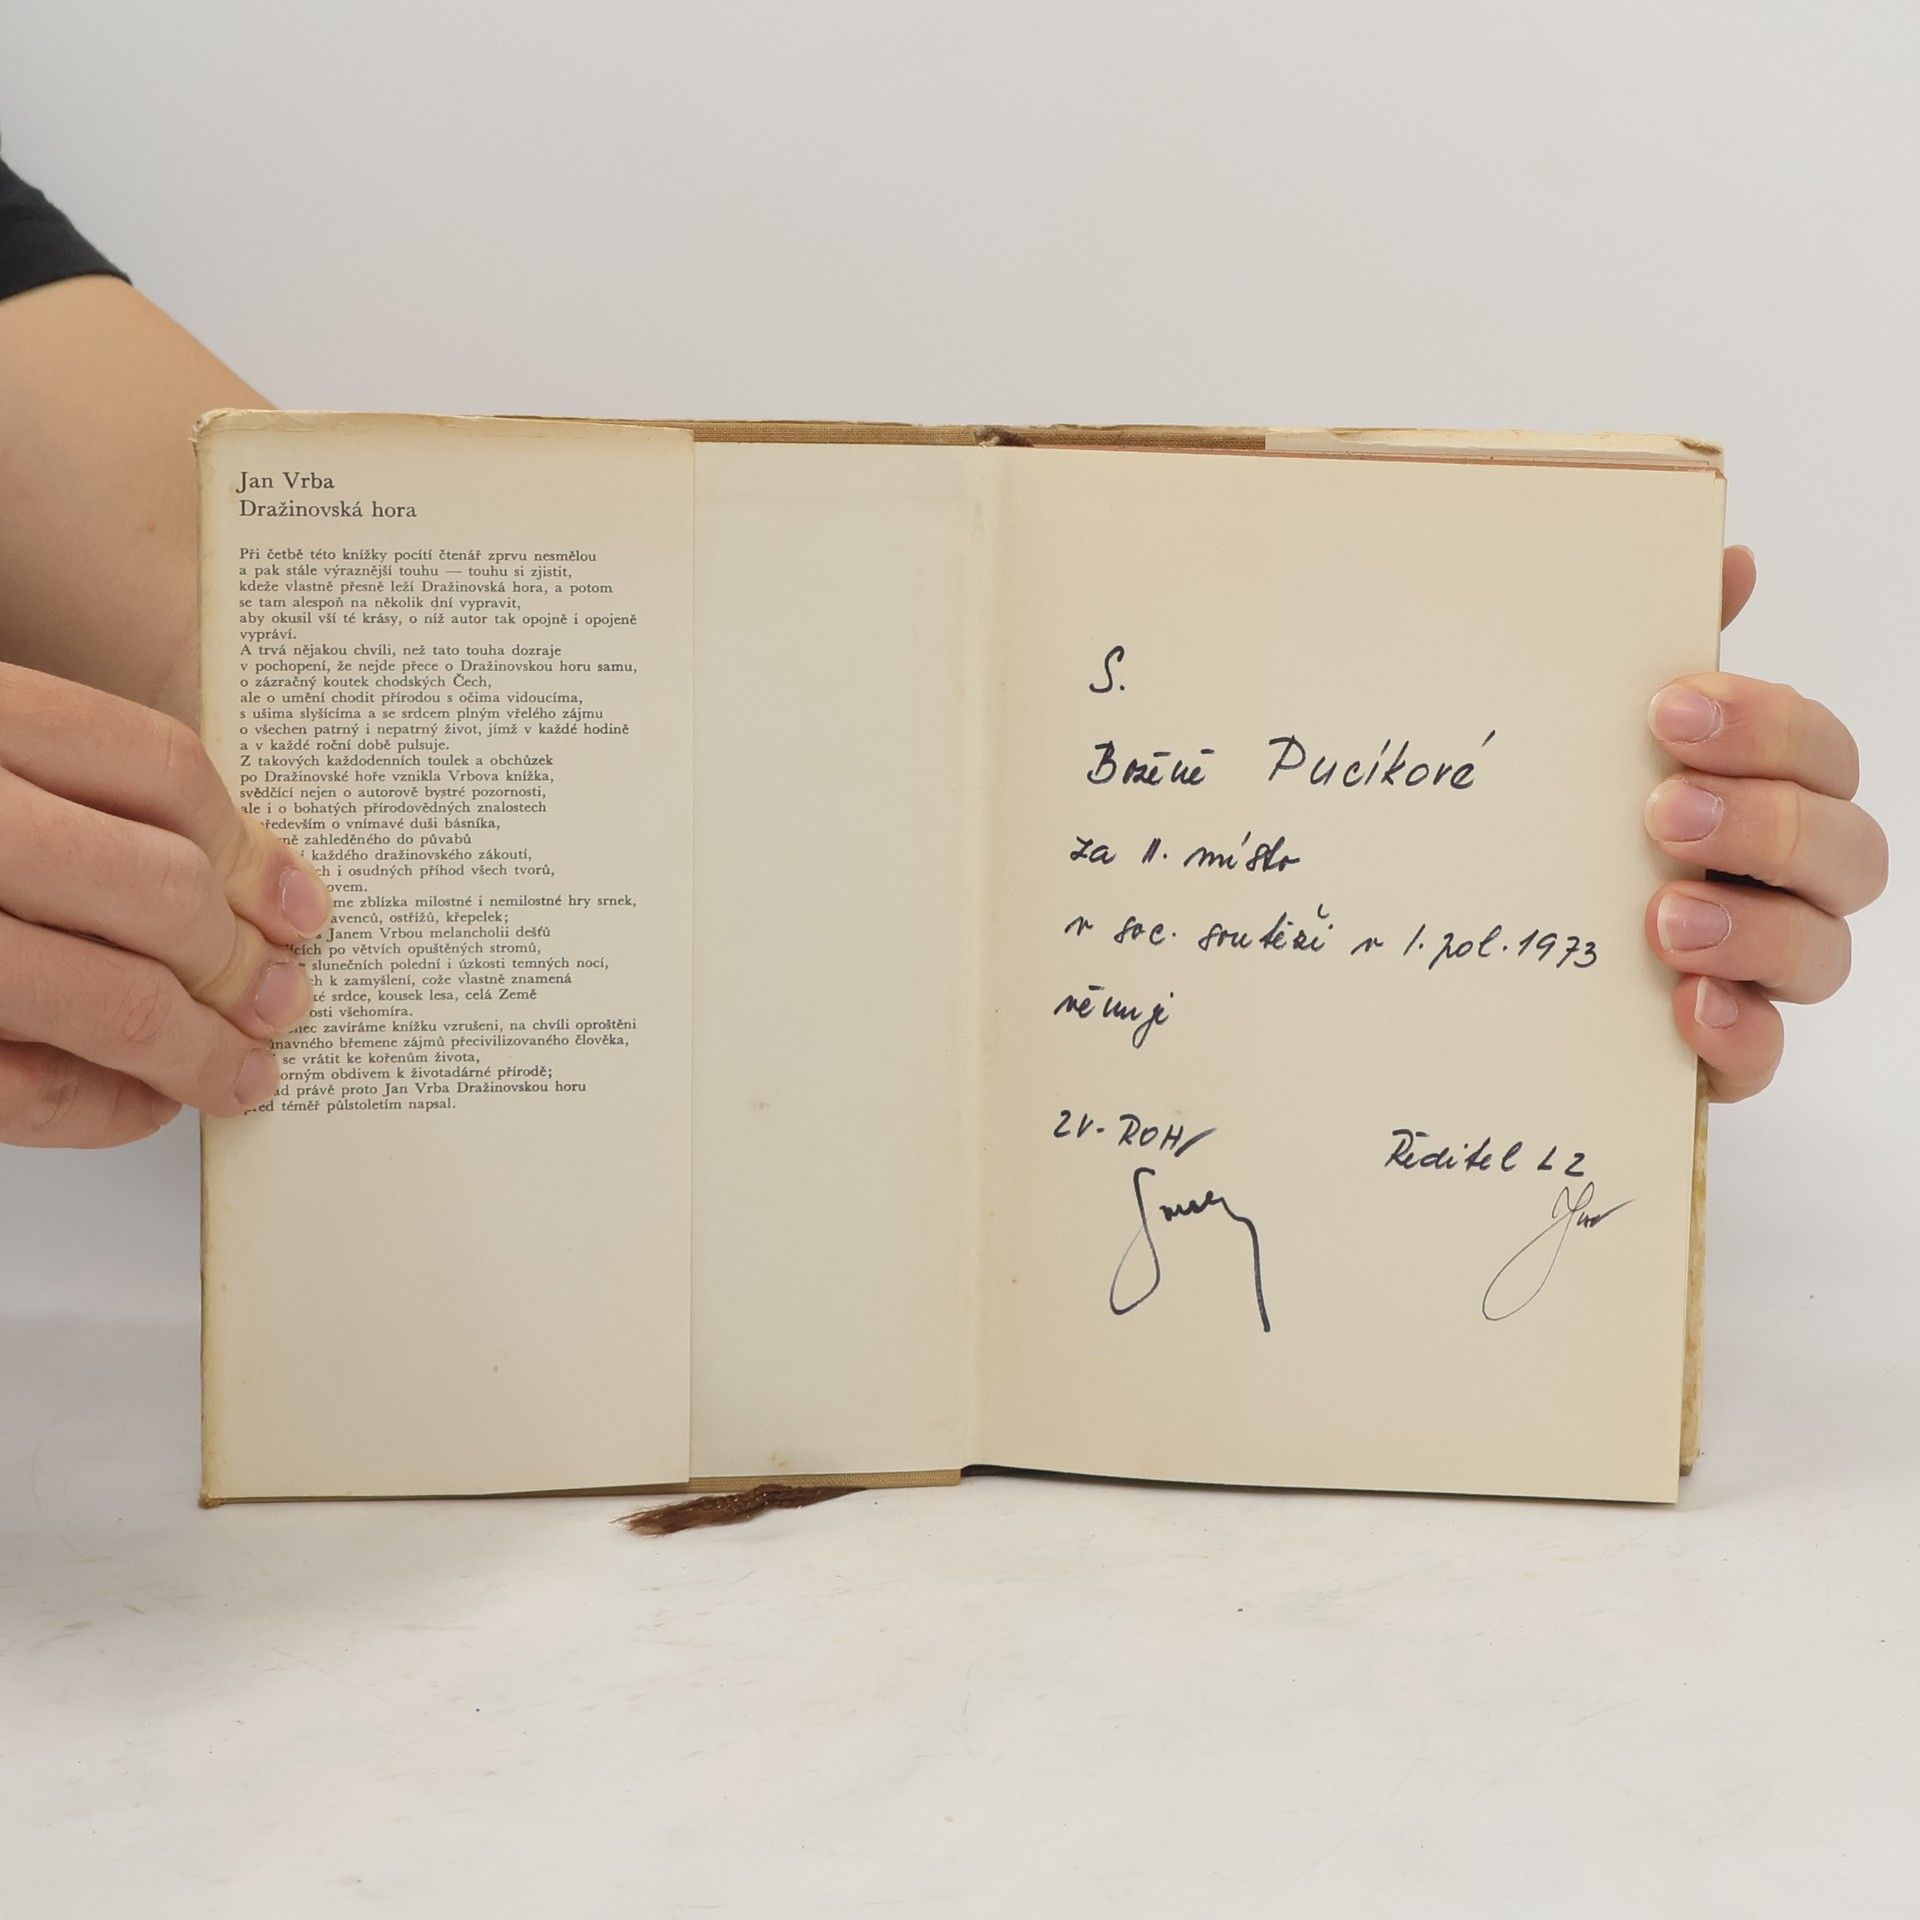 Jan Vrba
Dražinovská hora
Při četbě této knížky pocítí čtenář zprvu nesmělou
a pak stále výraznější touhu — touhu si zjistit,
kdeže vlastně přesně leží Dražinovská hora, a potom
se tam alespoň na několik dní vypravit,
aby okusil vší té krásy, o níž autor tak opojně i opojeně
vypráví.
A trvá nějakou chvíli, než tato touha dozraje
v pochopení, že nejde přece o Dražinovskou horu samu,
o zázračný koutek chodských Čech,
ale o umění chodit přírodou s očima vidoucíma,
s ušima slyšícíma a se srdcem plným vřelého zájmu
o všechen patrný i nepatrný život, jímž v každé hodině
a v každé roční době pulsuje.
Z takových každodenních toulek a obchůzek
po Dražinovské hoře vznikla Vrbova knížka,
svědčící nejen o autorově bystré pozornosti,
ale i o bohatých přírodovědných znalostech
především o vnímavé duši básníka,
zahleděného do půvabů
každého dražinovského zákoutí,
i osudných příhod všech tvorů,
zblízka milostné i nemilostné hry srnek,
ostřížů, křepelek;
s Janem Vrbou melancholii dešťů
po větvích opuštěných stromů,
slunečních polední i úzkosti temných nocí,
k zamyšlení, cože vlastně znamená
srdce, kousek lesa, celá Země
všehomíra.
zavíráme knížku vzrušeni, na chvíli oproštěni
břemene zájmů přecivilizovaného člověka,
se vrátit ke kořenům života,
obdivem k životadárné přírodě;
právě proto Jan Vrba Dražinovskou horu
před téměř půlstoletím napsal.
S.
Boženě Pucíkové
za II. místo
v soc. soutěži v 1. pol. 1973
věnuje
ZV-ROH
Ředitel LZ